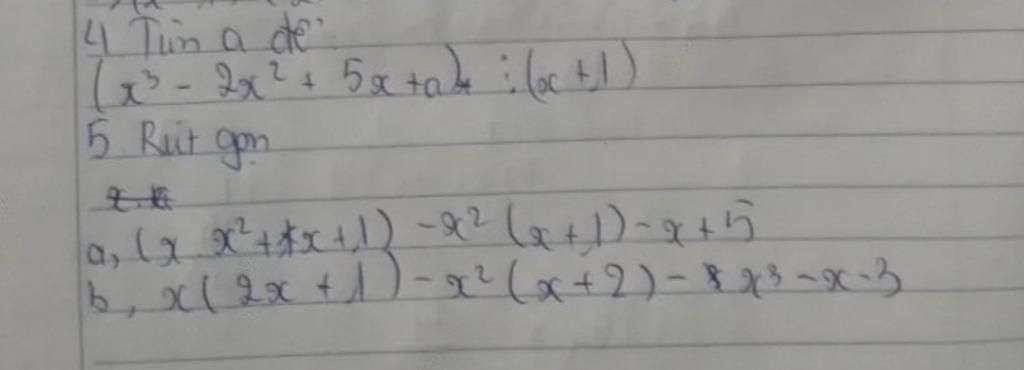 4 Tìm a để:
(x³ - 2x² + 5x + a) ⋮ (x + 1)
5. Rút gọn
a, (x x² + x + 1) - x² (x + 1) - x + 5
b, x( 2x + 1) - x² (x + 2) - x³ - x - 3